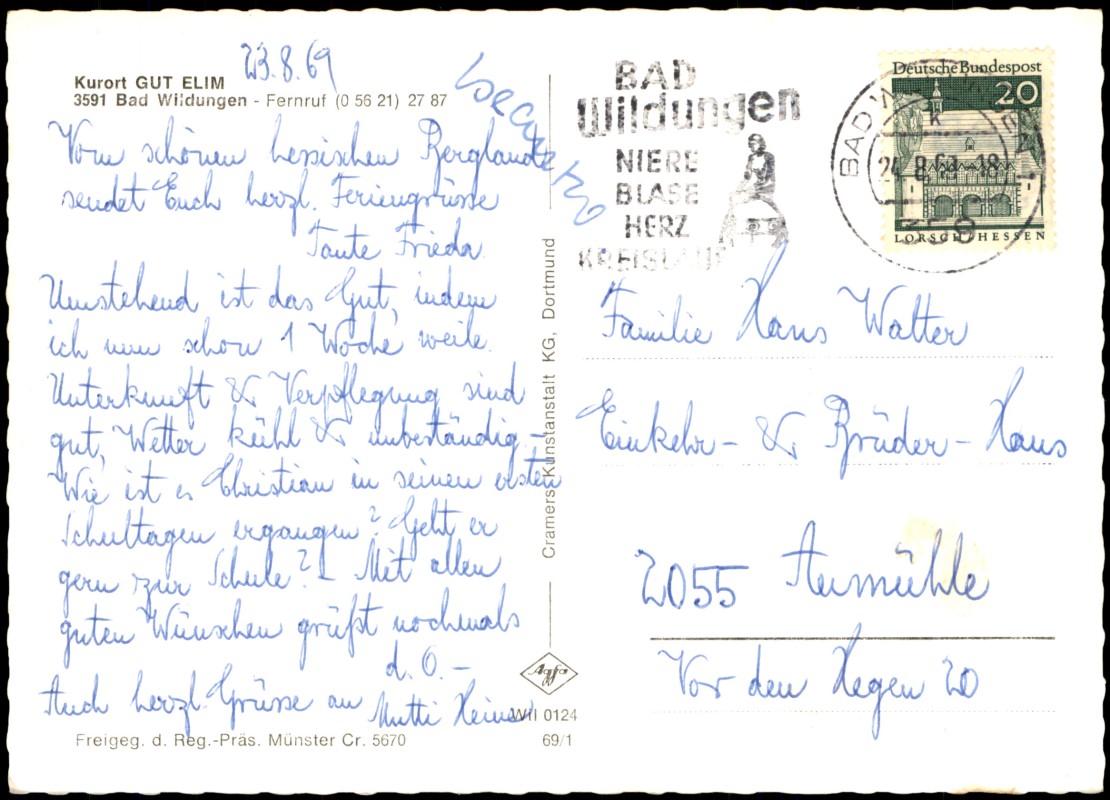 23.8.69
Kurort GUT ELIM
3591 Bad Wildungen - Fernruf (0 56 21) 27 87
Vom schönen hessischen Berglande
sendet Euch herzl. Feriengrüsse
Tante Frieda.
Umstehend ist das Gut, indem
ich nun schon 1 Woche weile.
Unterkunft & Verpflegung sind
gut, Wetter kühl & unbeständig. -
Wie ist es Christian in seinen ersten
Schultagen ergangen? Geht er
gern zur Schule? - Mit allen
guten Wünschen grüßt nochmals
d. O. -
Auch herzl. Grüsse an Mutti
Freigeg. d. Reg.-Präs. Münster Cr. 5670
Cramers Kunstanstalt KG, Dortmund
Agfa
Wil 0124
69/1
BAD
Wildungen
NIERE
BLASE
HERZ
KREISLAUF
Deutsche Bundespost
20
LORSCH/HESSEN
BAD
k
24.8.69-18
Familie Hans Walter
Einkehr- & Brüder-Haus
2055 Aumühle
Vor den Hegen 20